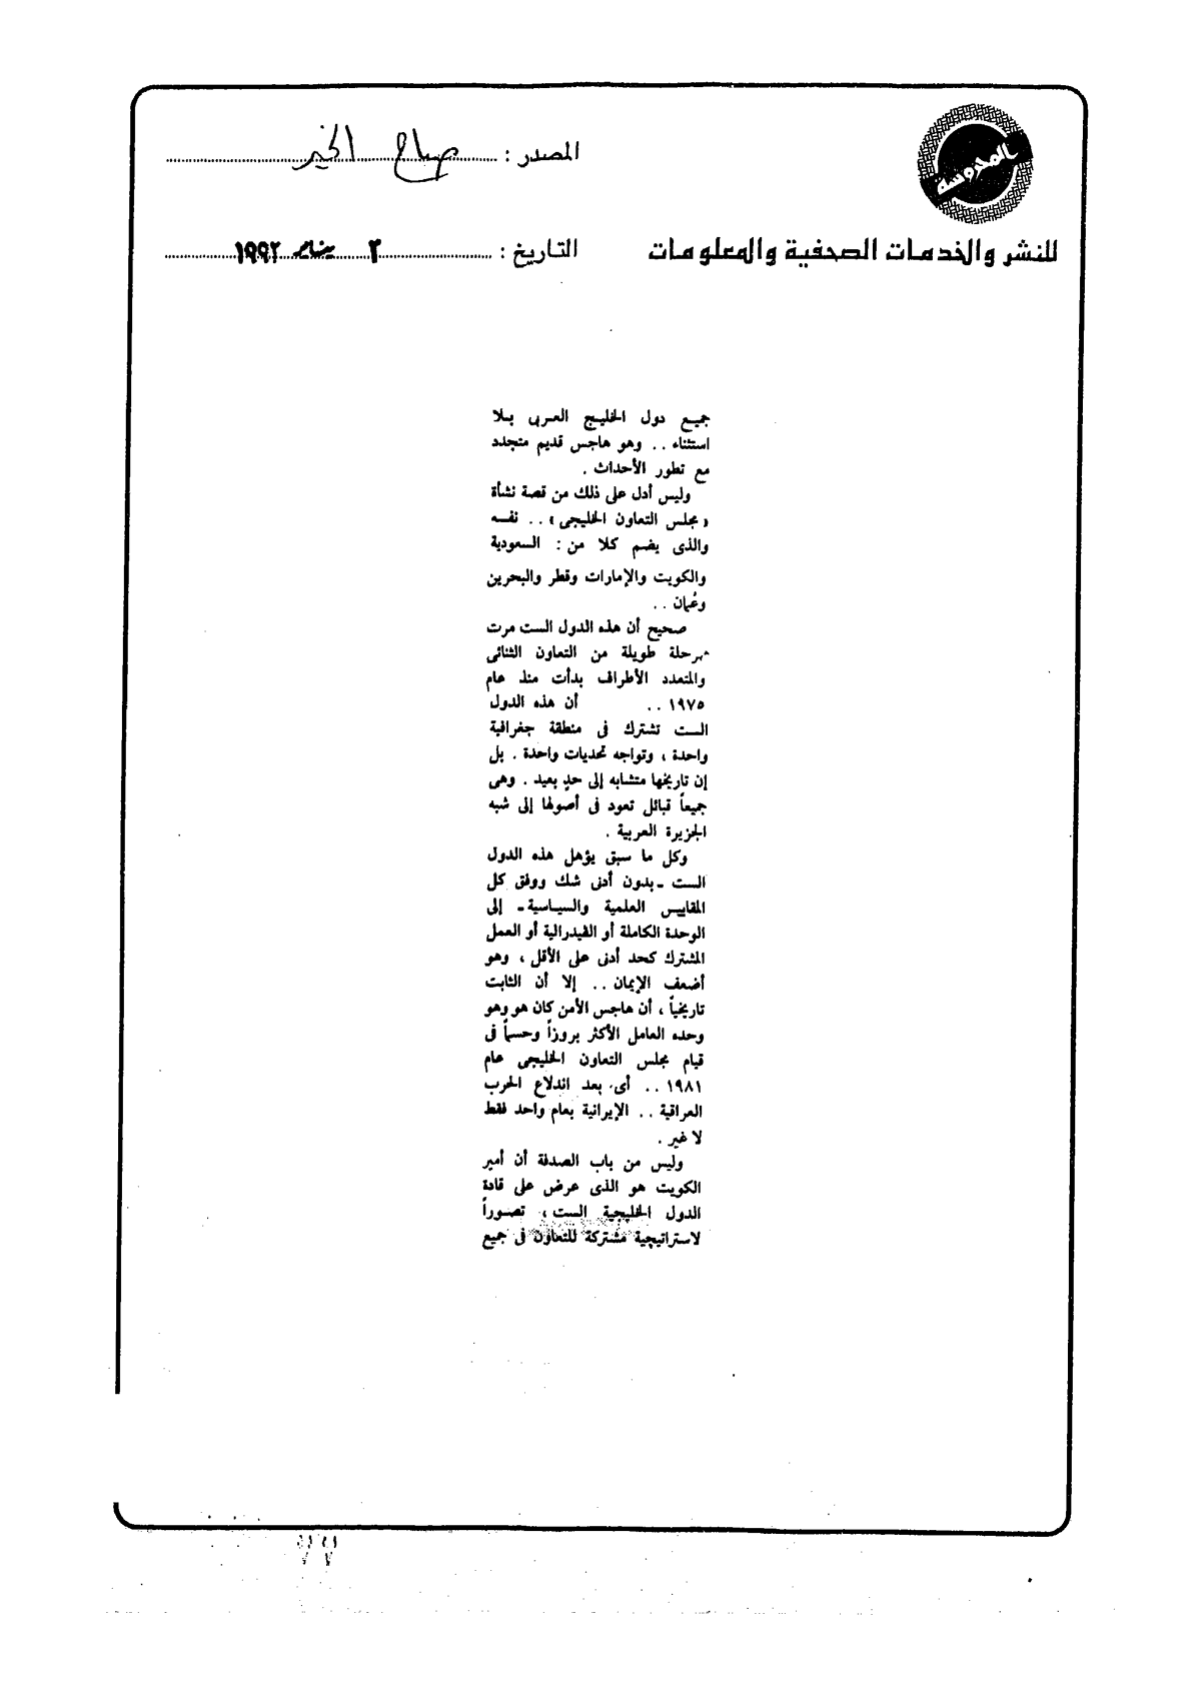 المحروسة
المصدر : صباح الخير
للنشر والخدمات الصحفية والمعلومات
التاريخ : ٢ يناير ١٩٩٢
جميع دول الخليج العربى بلا
استثناء .. وهو هاجس قديم متجدد
مع تطور الأحداث .
وليس أدل على ذلك من قصة نشأة
«مجلس التعاون الخليجى» .. نفسه
والذى يضم كلا من : السعودية
والكويت والإمارات وقطر والبحرين
وعُمان ..
صحيح أن هذه الدول الست مرت
بمرحلة طويلة من التعاون الثنائى
والمتعدد الأطراف بدأت منذ عام
١٩٧٥ .. أن هذه الدول
الست تشترك فى منطقة جغرافية
واحدة ، وتواجه تحديات واحدة . بل
إن تاريخها متشابه إلى حدٍ بعيد . وهى
جميعاً قبائل تعود فى أصولها إلى شبه
الجزيرة العربية .
وكل ما سبق يؤهل هذه الدول
الست - بدون أدنى شك ووفق كل
المقاييس العلمية والسياسية - إلى
الوحدة الكاملة أو الفيدرالية أو العمل
المشترك كحد أدنى على الأقل ، وهو
أضعف الإيمان .. إلا أن الثابت
تاريخياً ، أن هاجس الأمن كان هو وهو
وحده العامل الأكثر بروزاً وحسماً فى
قيام مجلس التعاون الخليجى عام
١٩٨١ .. أى بعد اندلاع الحرب
العراقية .. الإيرانية بعام واحد فقط
لا غير .
وليس من باب الصدفة أن أمير
الكويت هو الذى عرض على قادة
الدول الخليجية الست ، تصوراً
لاستراتيجية مشتركة للتعاون فى جميع